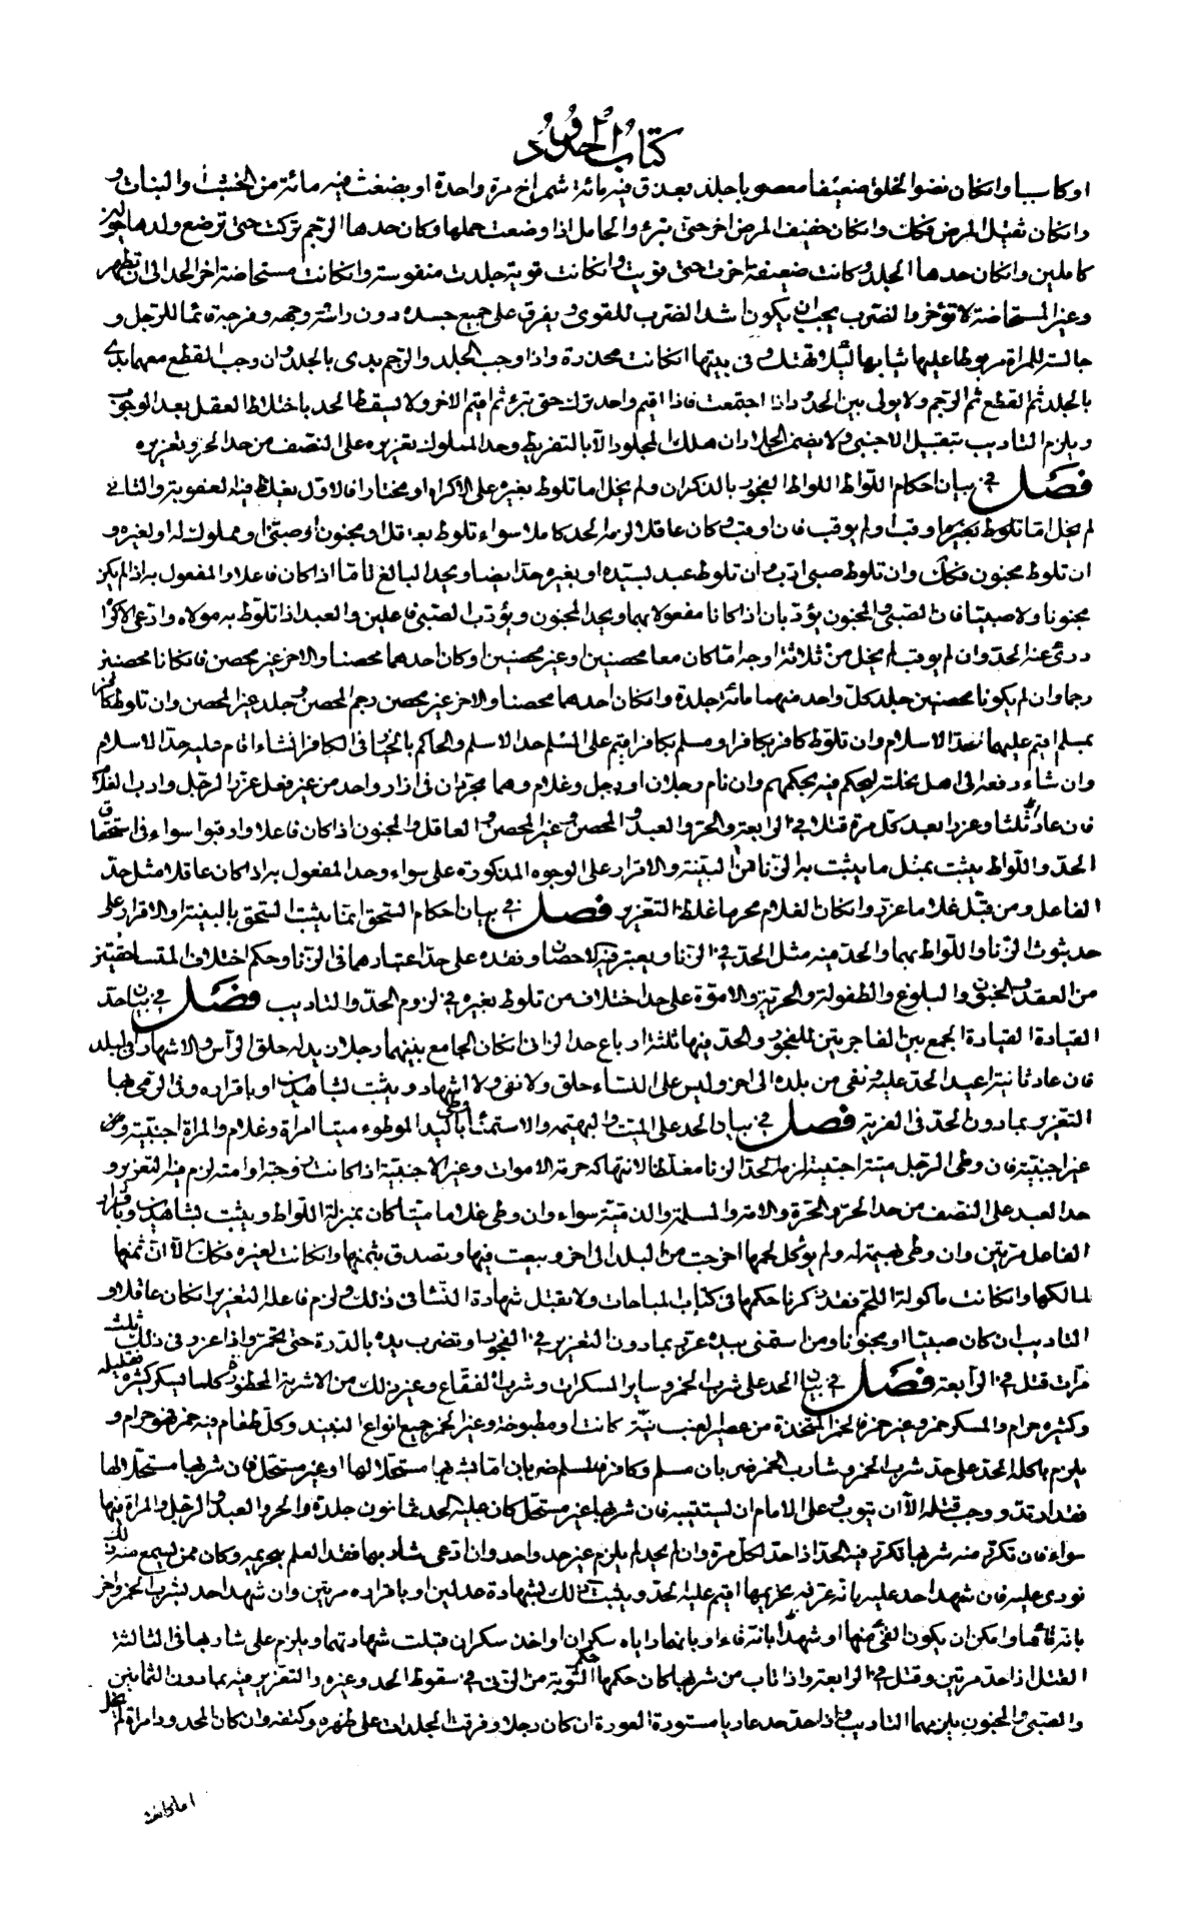 كتاب الحدود
او كاسيا وان كان نضو الخلق ضعيفا معصوبا جلد بعذق فيه مائة شمراخ مرة واحدة او بضغث فيه مائة من الخشب والنبات و
ان كان ثقيل المرض فكذلك وان كان خفيف المرض اخر حتى تبرء والحامل اذا وضعت حملها وكان حدها الرجم تركت حتى ترضع ولدها حولين
كاملين وان كان حدها الجلد وكانت ضعيفة اخرت حتى قويت وان كانت قوية جلدت منفوسة وان كانت مستحاضة اخر الحد الى ان تطهر
وغير المستحاضة لا تؤخر والضرب يجب ان يكون اشد الضرب للقوى ويفرق على جميع جسده دون راسه ووجهه وفرجه قائما للرجل و
جالسة للمراة مربوطا عليها ثيابها لئلا تهتك وفى بيتها ان كانت مخدرة واذا وجب الجلد والرجم بدى بالجلد وان وجب القطع معهما بدئ
بالجلد ثم القطع ثم الرجم ولا يولى بين الحدود اذا اجتمعت فاذا اقيم واحد ترك حتى تبرء ثم اقيم الاخر ولا يسقط الحد باختلاط العقل بعد الوجوب
ويلزم التاديب بتقبيل الاجنبى ولا يضمن الجلاد ان هلك المجلود الا بالتفريط وحد المملوك تعزيره على النصف من حد الحر وتعزيره
فصل فى بيان احكام اللواط اللواط الفجور بالذكران ولم يخل اما تلوط بغيره على الاكراه او مختارا فالاول يغلظ فيه العقوبة والثانى
لم يخل اما تلوط بغيره اوقب او لم يوقب فان اوقب وكان عاقلا لزمه الحد كاملا سواء تلوط بعاقل ومجنون او صبى او مملوك له او لغيره و
ان تلوط مجنون فكذلك وان تلوط صبى ادب وان تلوط عبد لسيده او بغيره حد ايضا ويحد البالغ تاما اذا كان فاعلا والمفعول به اذا لم يكن
مجنونا ولا صبيا فان الصبى والمجنون يؤدبان اذا كانا مفعولا بهما ويحد المجنون ويؤدب الصبى فاعلين والعبد اذا تلوط به مولاه وادعى الاكراه
درئ عنه الحد وان لم يوقب لم يخل من ثلاثة اوجه اما كان معا محصنين او غير محصنين او كان احدهما محصنا والاخر غير محصن فان كانا محصنين
رجما وان لم يكونا محصنين جلد كل واحد منهما مائة جلدة وان كان احدهما محصنا والاخر غير محصن رجم المحصن وجلد غير المحصن وان تلوط كافر
بمسلم اقيم عليهما حد الاسلام وان تلوط كافر بكافر او مسلم بكافر اقيم على المسلم حد الاسلام والحاكم بالخيار فى الكافر ان شاء اقام عليه حد الاسلام
وان شاء رفعه الى اهل نحلته ليحكم فيه بحكمهم وان نام رجلان او رجل وغلام وهما مجردان فى ازار واحد من غير فعل عزر الرجل وادب الغلام
فان عاد ثلثا وعزرا بعد كل مرة قتلا فى الرابعة والحر والعبد والمحصن وغير المحصن والعاقل والمجنون اذا كان فاعلا واوقبوا سواء فى استحقاق
الحد واللواط يثبت بمثل ما يثبت به الزنا من البينة والاقرار على الوجوه المذكورة على سواء وحد المفعول به اذا كان عاقلا مثل حد
الفاعل ومن قبل غلاما عزر وان كان الغلام محرما غلظ التعزير فصل فى بيان احكام السحق انما يثبت السحق بالبينة او الاقرار على
حد ثبوت الزنا واللواط بهما والحد فيه مثل الحد فى الزنا ويعتبر فيه الاحصان وفقده على حد اعتبارهما فى الزنا وحكم اختلاف المتساحقتين
من العقد والجنون والبلوغ والطفولة والحرية والاموة على حد اختلاف من تلوط بغيره فى لزوم الحد والتاديب فصل فى بيان حد
القيادة القيادة الجمع بين الفاجرين للفجور والحد فيها ثلثة ارباع حد الزنا ان كان الجامع بينهما رجلا ويزاد له حلق الراس والاشهار فى البلد
فان عاد ثانيا اعيد الحد عليه ونفى من بلده الى اخر وليس على النساء حلق ولا نفى ولا اشهار ويثبت بشاهدين او باقراره وفى الرمى بها
التعزير بما دون الحد فى الفرية فصل فى بيان الحد على وطى الميت والبهيمة والاستمناء باليد الموطوء ميتا امراة وغلام والمراة اجنبية وغير
غير اجنبية فان وطى الرجل ميتة اجنبية لزمه الحد الزنا مغلظا لانتهاكه حرمة الاموات وغير الاجنبية اذا كانت زوجة او امته لزم فيه التعزير و
حد العبد على النصف من حد الحر والحرة والامة والمسلمة والذمية سواء وان وطى غلاما ميتا كان بمنزلة اللواط ويثبت بشاهدين وباقرار
الفاعل مرتين وان وطى بهيمة له ولم يؤكل لحمها اخرجت من البلد الى اخر وبيعت فيها وتصدق بثمنها وان كانت لغيره فكذلك الا ان ثمنها
لمالكها وان كانت ماكولة اللحم فقد ذكرنا حكمها فى كتاب المباحات ولا يقبل شهادة النساء فى ذلك ولزم فاعله التعزير ان كان عاقلا و
التاديب ان كان صبيا او مجنونا ومن استمنى بيده عزر بما دون التعزير فى الفجور وتضرب يده بالدرة حتى تحمر واذا عزر فى ذلك ثلث
مرات قتل فى الرابعة فصل فى بيان الحد على شرب الخمر وساير المسكرات وشرب الفقاع وغير ذلك من الاشربة المحظورة كلما يسكر كثيره فقليله
وكثيره حرام والمسكر خمر وغير خمر فالخمر المتخذة من عصير العنب نية كانت او مطبوخة وغير الخمر جميع انواع النبيذ وكل طعام فيه خمر فهو حرام و
يلزم باكله الحد على حد شرب الخمر وشارب الخمر ضربان مسلم وكافر فالمسلم ضربان اما يشربها مستحلا لها او غير مستحل فان شربها مستحلا لها
فقد ارتد ووجب قتله الا ان يتوب وعلى الامام ان يستتيبه فان شربها غير مستحل كان عليه الحد ثمانون جلدة والحر والعبد والرجل والمراة فيها
سواء فان تكرر منه شربها تكرر فيه الحد اذا حد لكل مرة وان لم يحد لم يلزم غير حد واحد وان ادعى شاربها فقد العلم بتحريمه وكان ممن يسمع منه ذلك
نودى عليه فان شهد احد عليه بانه عرف تحريمها اقيم عليه الحد ويثبت ذلك بشهادة عدلين او باقراره مرتين وان شهد احد بشرب الخمر واخر
بانه قاءها وامكن ان يكون القئ منها او شهدا بانه قاء او بانهما راياه سكران او اخذ سكران قبلت شهادتهما ويلزم على شاربها فى الثالثة
القتل اذا حد مرتين وقتل فى الرابعة واذا تاب من شربها كان حكمها حكم التوبة من الزنى فى سقوط الحد وغيره والتعزير فيه بما دون الثمانين
والصبى والمجنون يلزمهما التاديب واذا حد حد عاريا مستورة العورة ان كان رجلا وفرقت الجلدات على ظهره وكتفه وان كان المحدود امراة لم يخل
اما كانت